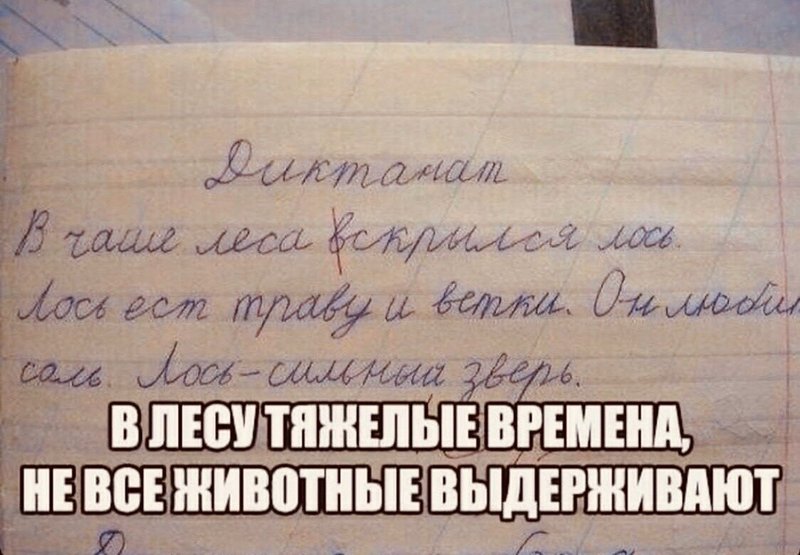 Диктанат
В чаше леса вскрылся лось.
Лось ест траву и ветки. Он любил
соль. Лось-сильный зверь.
В ЛЕСУ ТЯЖЕЛЫЕ ВРЕМЕНА,
НЕ ВСЕ ЖИВОТНЫЕ ВЫДЕРЖИВАЮТ